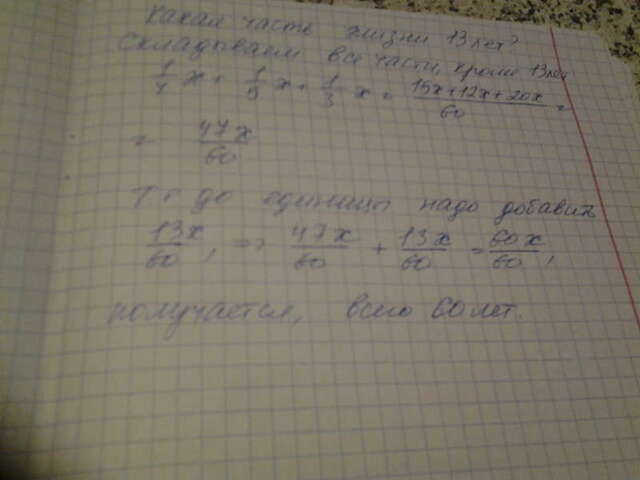 Какая часть жизни 13 лет?
Складываем все части, кроме 13 лет
1/4 x + 1/5 x + 1/3 x = (15x+12x+20x)/60 =
= 47x/60
Т.е до единицы надо добавить
13x/60, => 47x/60 + 13x/60 = 60x/60,
получается, всего 60 лет.